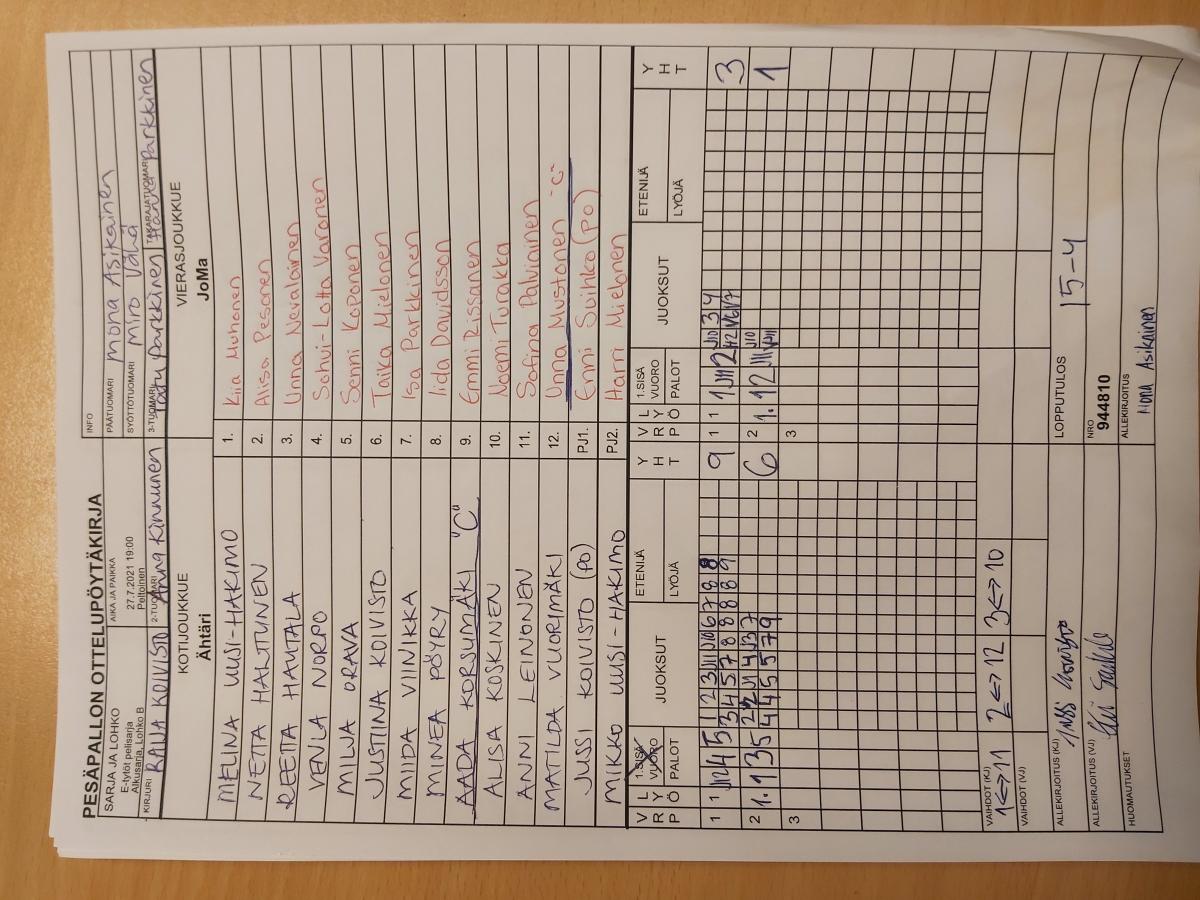 PESÄPALLON OTTELUPÖYTÄKIRJA
SARJA JA LOHKO
E-tytöt pelisarja
Alkusarja, Lohko B
AIKA JA PAIKKA
27.7.2021 19:00
Peltoinen
INFO
PÄÄTUOMARI Mona Asikainen
SYÖTTÖTUOMARI Miro Vähä
KIRJURI RAIJA KOIVISTO
2-TUOMARI Anna Kinnunen
3-TUOMARI Tatu Parkkinen
TAKARAJATUOMARI Hanna Parkkinen
KOTIJOUKKUE
Ähtäri
VIERASJOUKKUE
JoMa
MELINA UUSI-HAKIMO 1. Kiia Muhonen
NETTA HALTTUNEN 2. Alisa Pesonen
REETTA HAUTALA 3. Unna Nevalainen
VENLA NORPO 4. Sohvi-Lotta Varonen
MILJA ORAVA 5. Senni Koponen
JUSTIINA KOIVISTO 6. Taika Mielonen
MIIDA VIINIKKA 7. Isa Parkkinen
MINEA PÖYRY 8. Iida Davidsson
AADA KORSUMÄKI "C" 9. Emmi Rissanen
ALISA KOSKINEN 10. Noemi Turakka
ANNI LEINONEN 11. Sofina Palviainen
MATILDA VUORIMÄKI 12. Unna Mustonen -C-
JUSSI KOIVISTO (PO) PJ1. Enni Suihko (PO)
MIKKO UUSI-HAKIMO PJ2. Harri Mielonen
VRP LYÖ 1.SISÄ VUORO PALOT JUOKSUT ETENIJÄ LYÖJÄ YHT VRP LYÖ 1.SISÄ VUORO PALOT JUOKSUT ETENIJÄ LYÖJÄ YHT
1 1 9 1 1 3
2 1. 6 2 1. 1
3 3
VAIHDOT (KJ)
1<->11 2<->12 3<->10
VAIHDOT (VJ)
ALLEKIRJOITUS (KJ)
LOPPUTULOS 15-4
ALLEKIRJOITUS (VJ)
NRO
944810
HUOMAUTUKSET
ALLEKIRJOITUS
Mona Asikainen